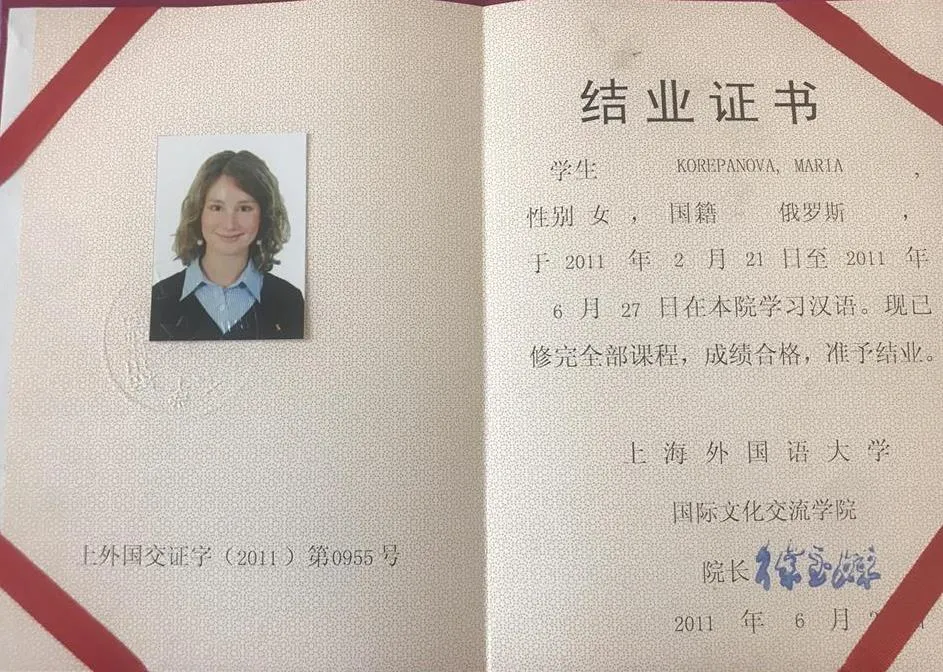 上外国交证字（2011）第0955号
结业证书
学生 KOREPANOVA, MARIA ，
性别 女 ， 国籍 俄罗斯 ，
于 2011 年 2 月 21 日至 2011 年
6 月 27 日在本院学习汉语。现已
修完全部课程，成绩合格，准予结业。
上海外国语大学
国际文化交流学院
院长
2011 年 6 月